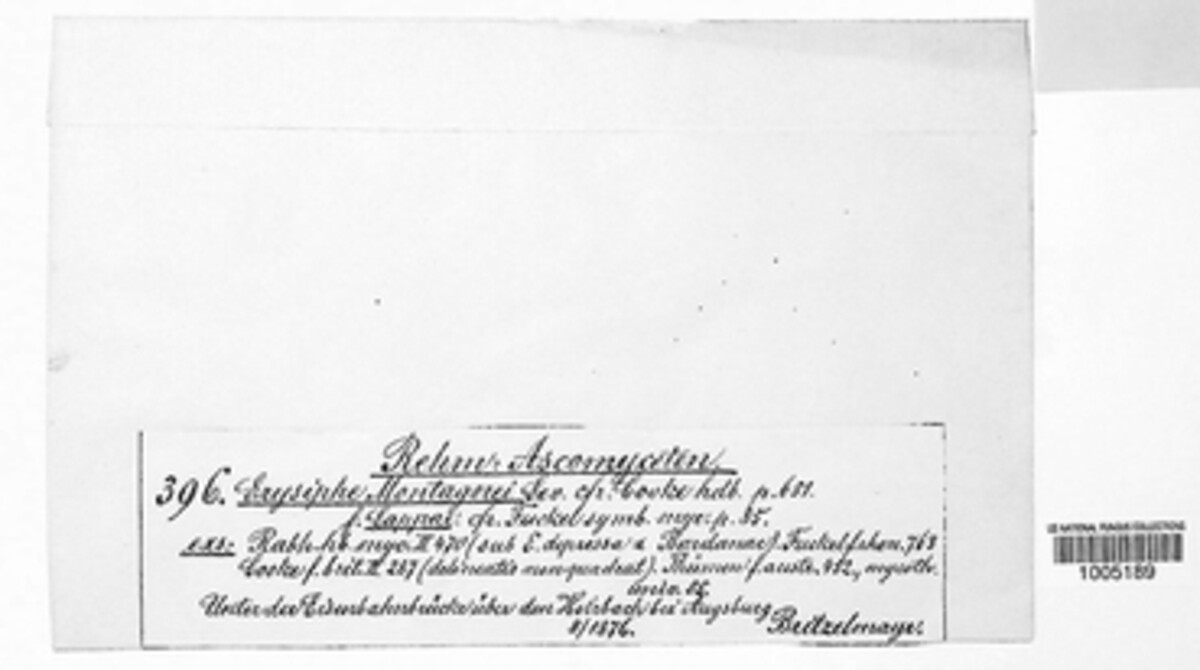 Rehm: Ascomyceten.
396. Erysiphe Montagnei Lev. cfr. Cooke hdb. p. 651.
f. Lappae: cfr. Fuckel symb. myc. p. 85.
exs: Rabh. hb. myc. II 470 (sub E. depressa a Bardanae). Fuckel f. rhen. 768
Cooke f. brit. II 287 ( ). Thümen f. austr. 452, mycoth.
univ.
Unter der Eisenbahnbrücke über den Holzbach bei Augsburg
8/1876. Britzelmayr.
US NATIONAL FUNGUS COLLECTIONS
1005189